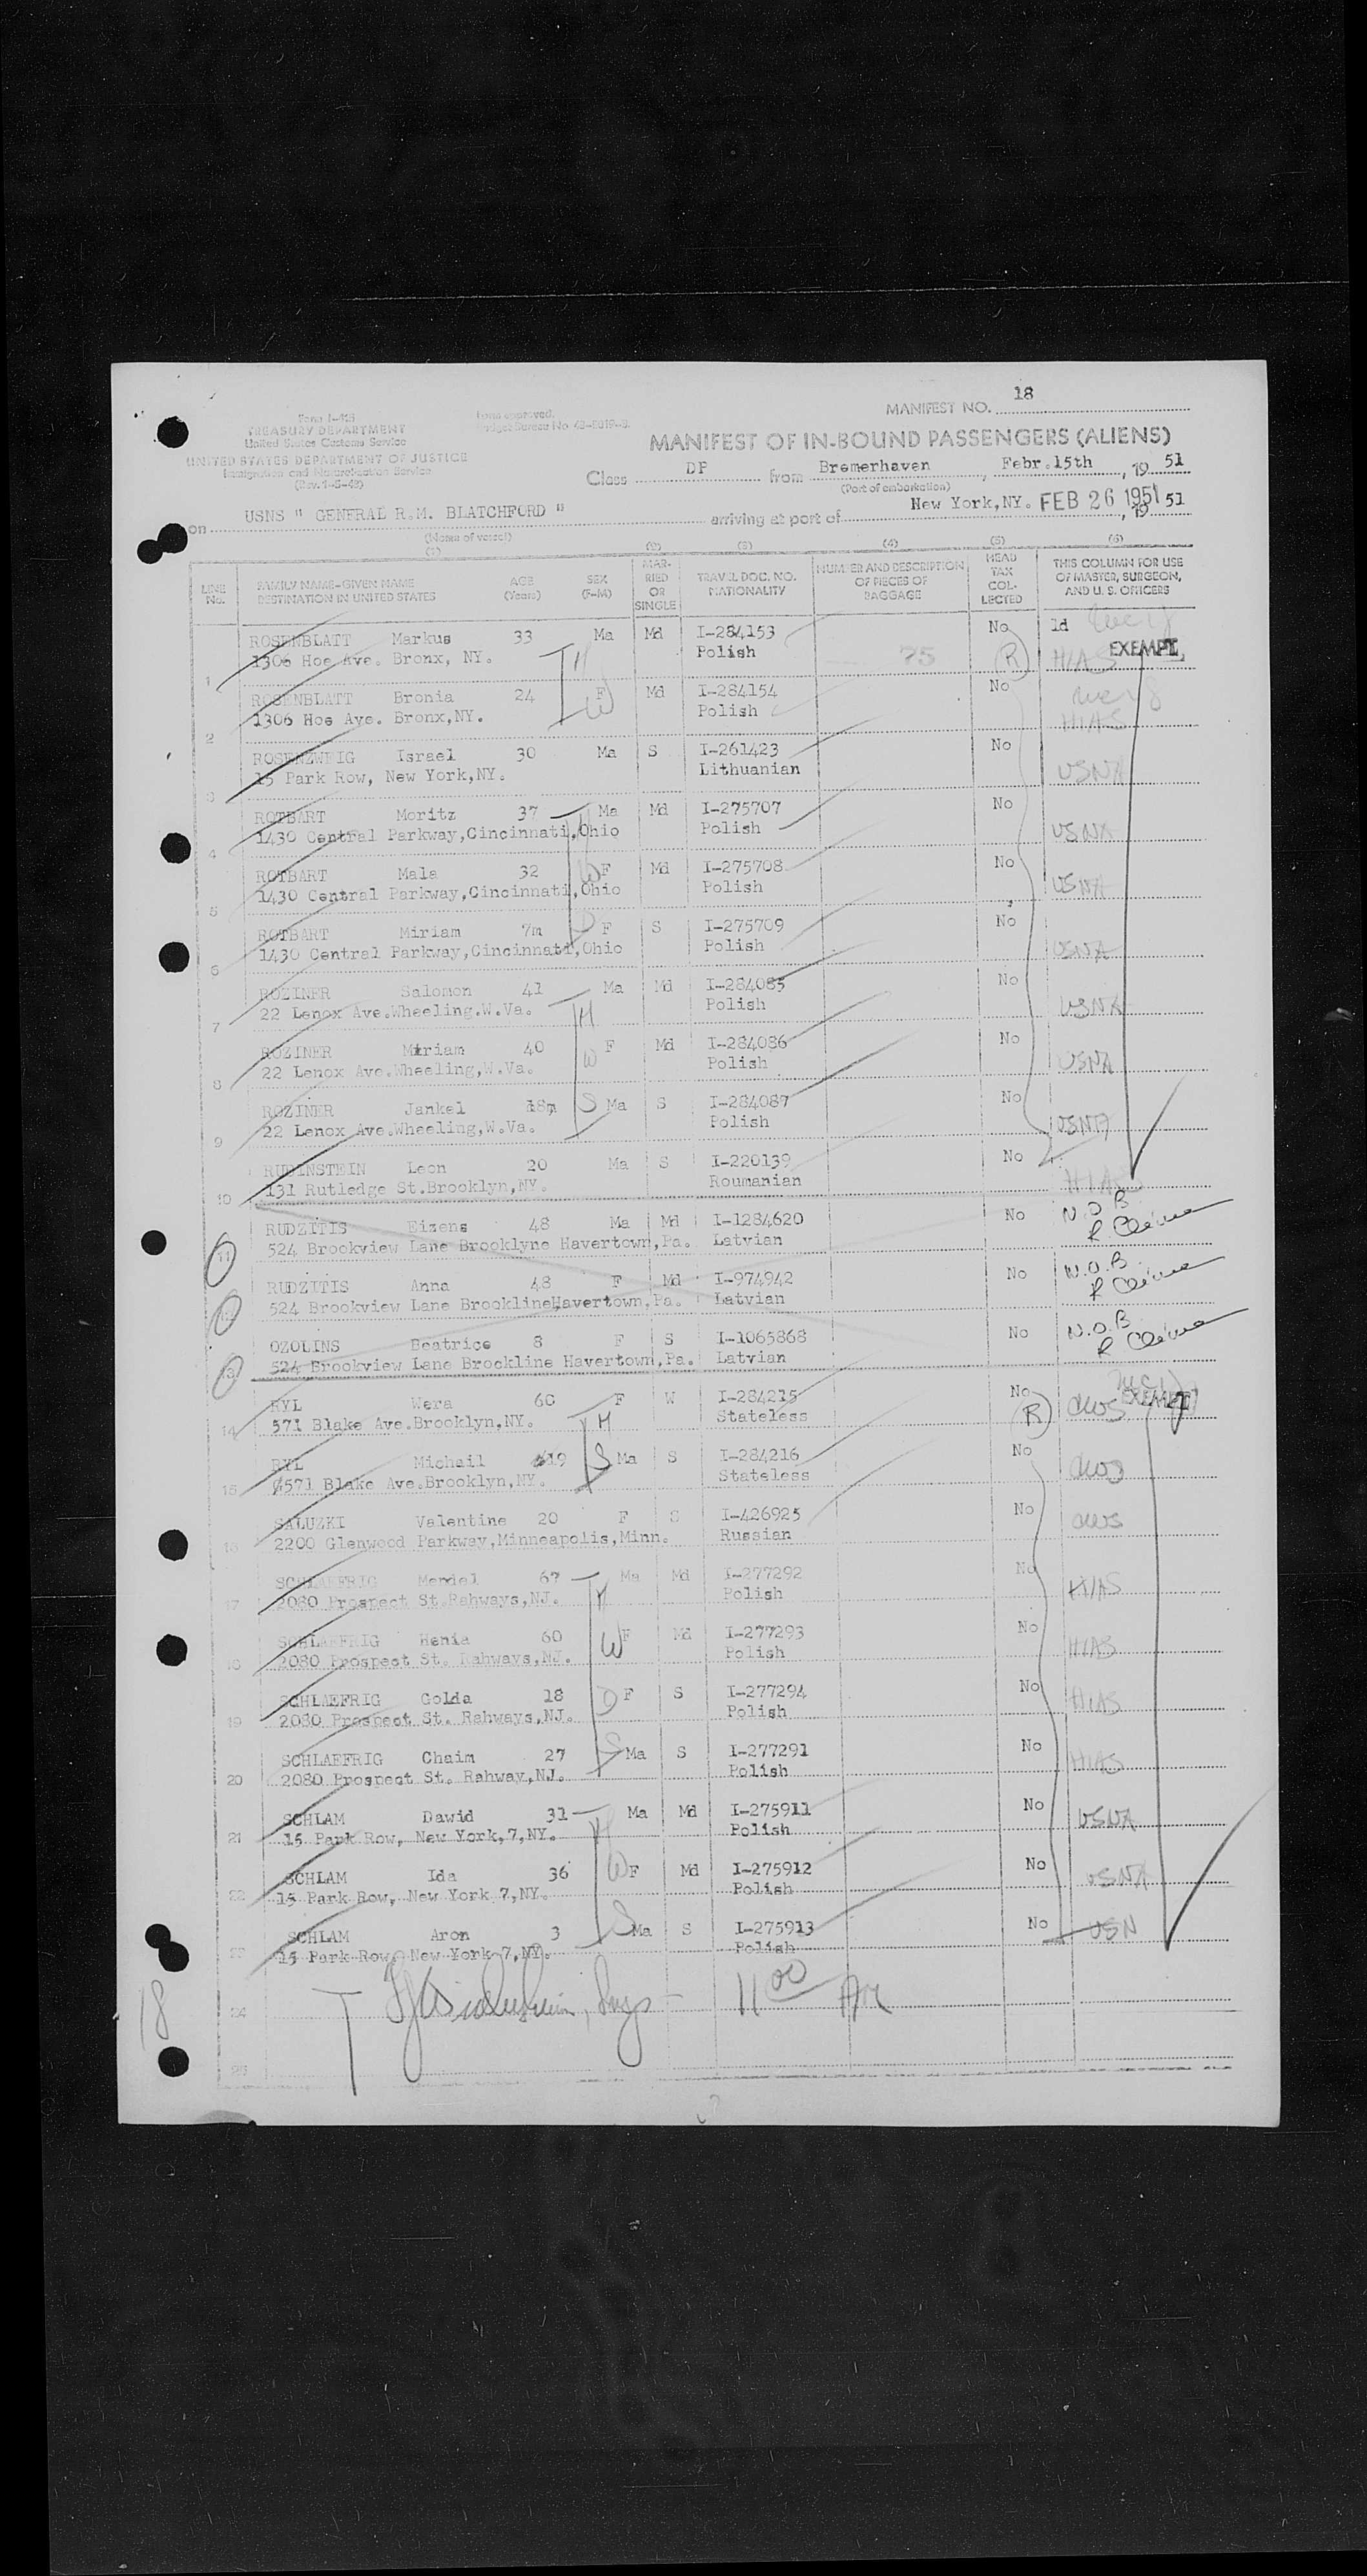 MANIFEST NO. 18
Form I-415
TREASURY DEPARTMENT
United States Customs Service
UNITED STATES DEPARTMENT OF JUSTICE
Immigration and Naturalization Service
Form approved.
Budget Bureau No. 43-R019-3.
MANIFEST OF IN-BOUND PASSENGERS (ALIENS)
Class DP from Bremerhaven, Febr.15th, 19 51
(Port of embarkation)
on USNS " GENERAL R.M. BLATCHFORD " arriving at port of New York,NY. FEB 26 1951, 19 51
(Name of vessel)
(1) (2) (3) (4) (5) (6)
LINE No. FAMILY NAME-GIVEN NAME DESTINATION IN UNITED STATES AGE (Years) SEX (F-M) MARRIED OR SINGLE TRAVEL DOC. NO. NATIONALITY NUMBER AND DESCRIPTION OF PIECES OF BAGGAGE HEAD TAX COLLECTED THIS COLUMN FOR USE OF MASTER, SURGEON, AND U. S. OFFICERS
ROSENBLATT Markus 33 Ma Md I-284153 No ld
1 1306 Hoe Ave. Bronx, NY. H Polish 75 R HIAS EXEMPT
ROSENBLATT Bronia 24 F Md I-284154 No
2 1306 Hoe Ave. Bronx,NY. W Polish HIAS
ROSENZWEIG Israel 30 Ma S I-261423 No
3 15 Park Row, New York,NY. Lithuanian USNA
ROTBART Moritz 37 Ma Md I-275707 No
4 1430 Central Parkway,Cincinnati,Ohio H Polish USNA
ROTBART Mala 32 W F Md I-275708 No
5 1430 Central Parkway,Cincinnati,Ohio Polish USNA
ROTBART Miriam 7m D F S I-275709 No
6 1430 Central Parkway,Cincinnati,Ohio Polish USNA
ROZINER Salomon 41 Ma Md I-284085 No
7 22 Lenox Ave.Wheeling.W.Va. H Polish USNA
ROZINER Miriam 40 F Md I-284086 No
8 22 Lenox Ave.Wheeling,W.Va. W Polish USNA
ROZINER Jankel 18m S Ma S I-284087 No
9 22 Lenox Ave.Wheeling,W.Va. Polish USNA
RUBINSTEIN Leon 20 Ma S I-220139 No
10 131 Rutledge St.Brooklyn,NY. Roumanian HIAS
RUDZITIS Eizens 48 Ma Md I-1284620 No N.O.B
11 524 Brookview Lane Brooklyne Havertown,Pa. Latvian
RUDZITIS Anna 48 F Md I-974942 No N.O.B.
12 524 Brookview Lane BrooklineHavertown,Pa. Latvian
OZOLINS Beatrice 8 F S I-1065868 No N.O.B.
13 524 Brookview Lane Brockline Havertown,Pa. Latvian
RYL Wera 60 F W I-284215 No EXEMPT
14 571 Blake Ave.Brooklyn,NY. H Stateless R CWS
RYL Michail 19 S Ma S I-284216 No
15 571 Blake Ave.Brooklyn,NY. Stateless CWS
SALUZKI Valentine 20 F S I-426925 No
16 2200 Glenwood Parkway,Minneapolis,Minn. Russian CWS
SCHLAEFRIG Mendel 67 Ma Md I-277292 No
17 2080 Prospect St.Rahways,NJ. H Polish HIAS
SCHLAEFRIG Henia 60 F Md I-277293 No
18 2080 Prospect St. Rahways,NJ. W Polish HIAS
SCHLAEFRIG Golda 18 D F S I-277294 No
19 2080 Prospect St. Rahways,NJ. Polish HIAS
SCHLAEFRIG Chaim 27 S Ma S I-277291 No
20 2080 Prospect St. Rahway,NJ. Polish HIAS
SCHLAM Dawid 31 Ma Md I-275911 No
21 15 Park Row, New York,7,NY. H Polish USNA
SCHLAM Ida 36 W F Md I-275912 No
22 15 Park Row, New York 7,NY. Polish USNA
SCHLAM Aron 3 S Ma S I-275913 No
23 15 Park Row, New York 7,NY. Polish USN
24 11 00 AM
25
18